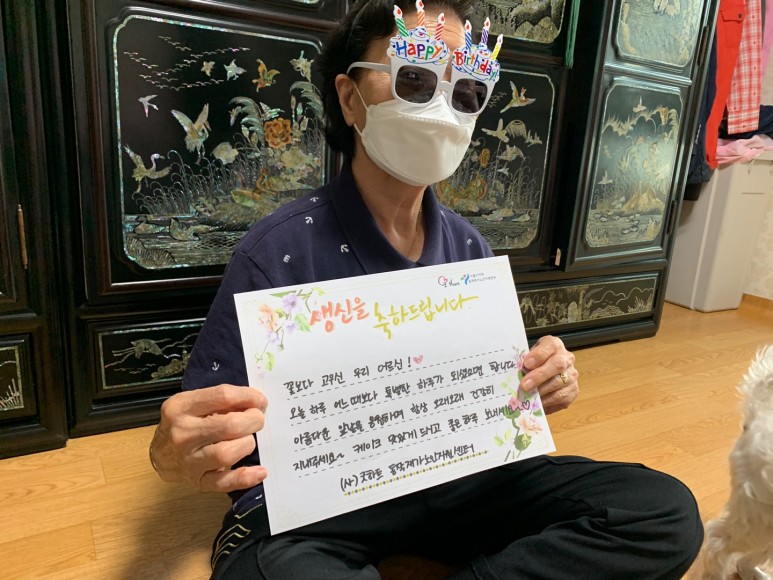 Happy Birthday
생신을 축하드립니다
꽃보다 고우신 우리 어르신!
오늘 하루 어느때보다 특별한 하루가 되셨으면 합니다.
아름다운 앞날을 응원하며 항상 오래오래 건강히
지내주세요~ 케이크 맛있게 드시고 좋은 하루 보내세요~
(사) 굿하트 동작재가노인지원센터